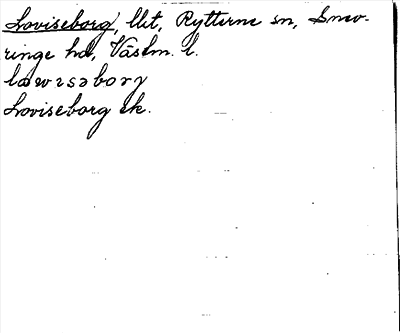 Loviseborg, llit, Rytterne sn, Snev-
ringe hd, Västm. l.
Loviseborg ek.